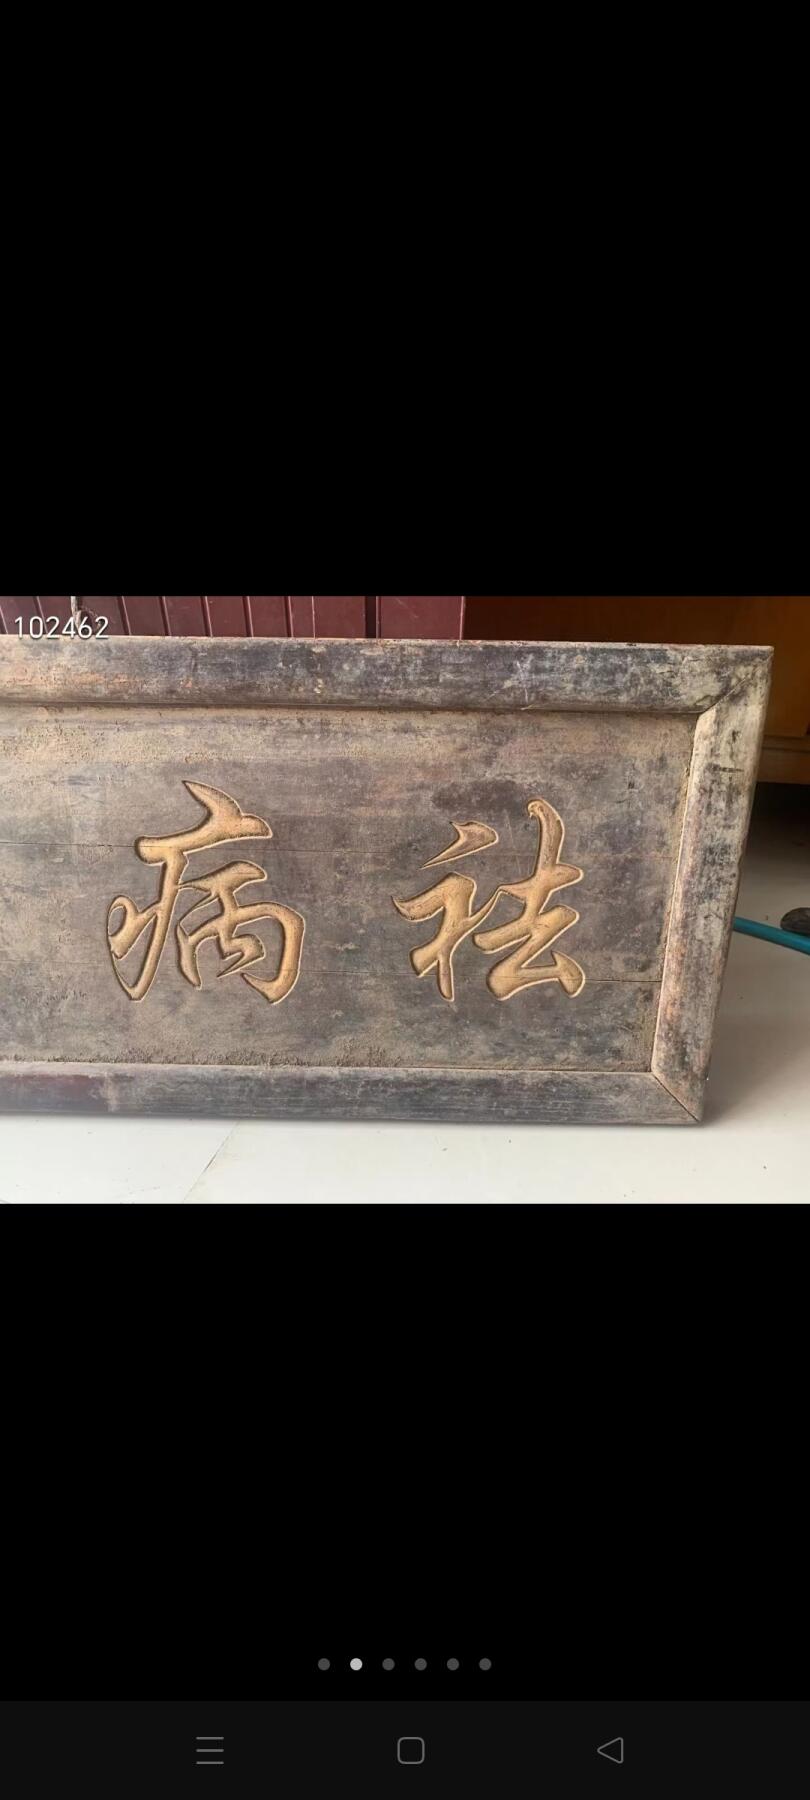 102462
祛病